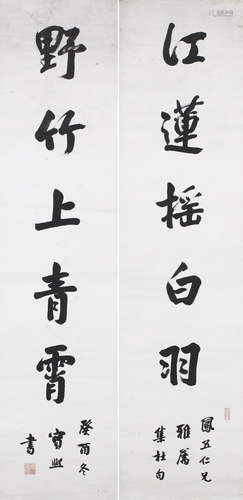 江蓮摇白羽
鳳五仁兄
雅屬
集杜句
野竹上青霄
癸酉冬
寶熙
書